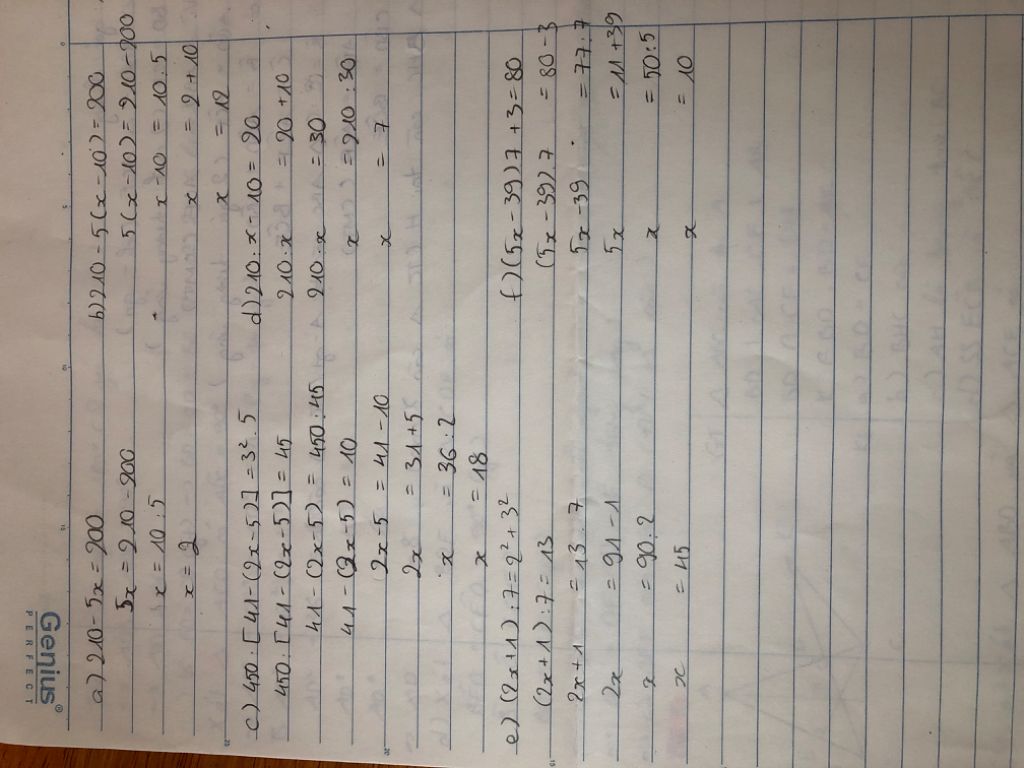 Genius®
PERFECT
a) 210 - 5x = 200
5x = 210 - 200
x = 10 : 5
x = 2
b) 210 - 5(x-10) = 200
5(x-10) = 210-200
x-10 = 10:5
x = 2+10
x = 12
c) 450 : [41-(2x-5)] = 3².5
450 : [41-(2x-5)] = 45
41-(2x-5) = 450:45
41-(2x-5) = 10
2x-5 = 41-10
2x = 31+5
x = 36:2
x = 18
d) 210 : x - 10 = 20
210 : x = 20+10
210 : x = 30
x = 210:30
x = 7
e) (2x+1):7 = 2²+3²
(2x+1):7 = 13
2x+1 = 13.7
2x = 91-1
x = 90:2
x = 45
f) (5x-39)7+3=80
(5x-39)7 = 80-3
5x-39 = 77:7
5x = 11+39
x = 50:5
x = 10